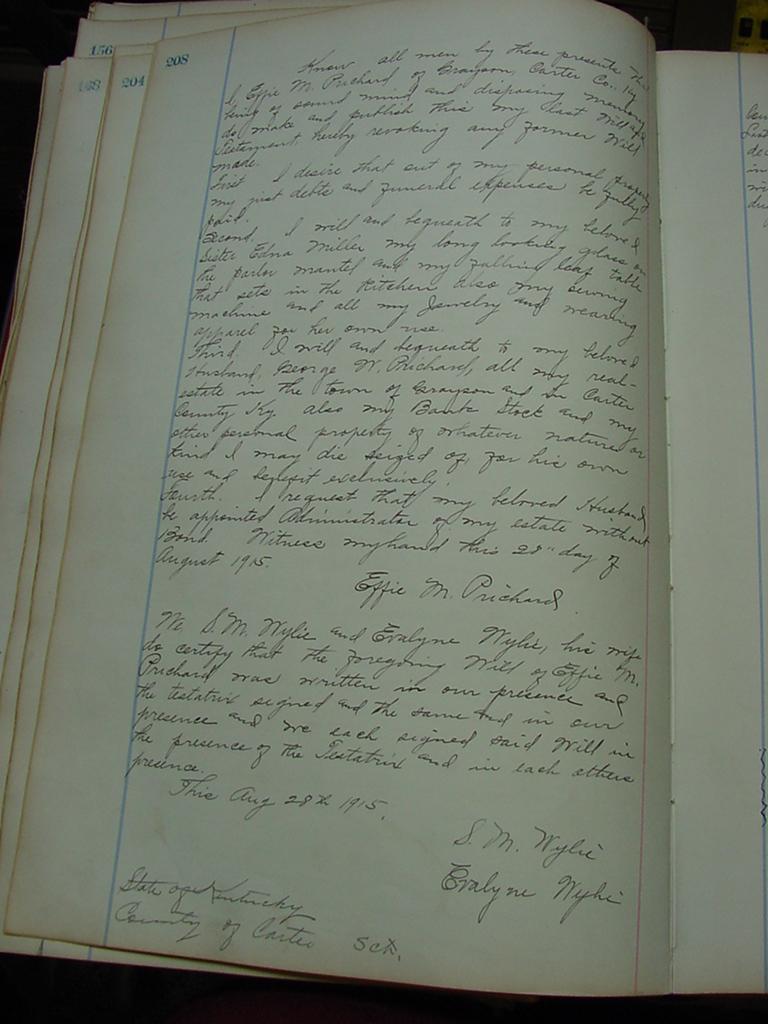 156
168
204
208
Know all men by these presents that
I Effie M. Prichard of Grayson, Carter Co., Ky
being of sound mind and disposing memory
do make and publish this my last Will and
Testament, hereby revoking any former Will
made.
First I desire that out of my personal property
my just debts and funeral expenses be fully
paid.
Second. I will and bequeath to my beloved
Sister Edna Miller my long looking glass on
the parlor mantel and my falling leaf table
that sets in the Kitchen also my sewing
machine and all my Jewelry and wearing
apparel for her own use.
Third. I will and bequeath to my beloved
Husband, George W. Prichard, all my real-
estate in the town of Grayson and in Carter
County Ky also my Bank Stock and my
other personal property of whatever nature or
kind I may die seized of, for his own
use and benefit exclusively.
Fourth. I request that my beloved Husband
be appointed Administrator of my estate without
Bond. Witness my hand this 28" day of
August 1915.
Effie M. Prichard
We S. M. Wylie and Evalyne Wylie, his wife
do certify that the foregoing Will of Effie M.
Prichard was written in our presence and
the testatrix signed and the same and in our
presence and we each signed said Will in
the presence of the Testatrix and in each others
presence.
This Aug 28th 1915.
S. M. Wylie
Evalyne Wylie
State of Kentucky
County of Carter Sct.